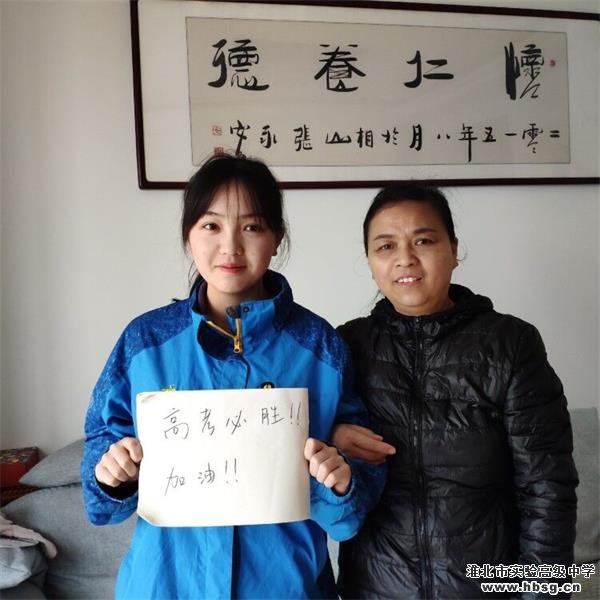 懷仁養德
二零一五年八月於相山張永安
高考必胜!!
加油!!
淮北市实验高级中学
www.hbsg.cn